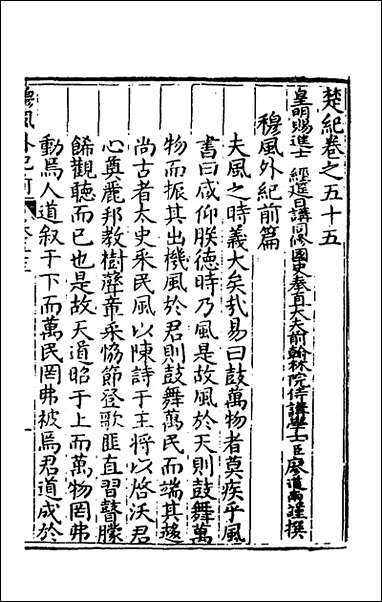 楚紀卷之五十五
皇明賜進士 經筵日講同脩國史奉直大夫前翰林院侍講學士臣廖道南謹撰
穆風外紀前篇
夫風之時義大矣哉易曰鼓萬物者莫疾乎風
書曰咸仰朕德時乃風是故風於天則鼓舞萬
物而振其出機風於君則鼓舞萬民而端其趍
尚古者太史采民風以陳詩于王將以啓沃君
心奠麗邦教樹聲章采恊節登歌匪直習瞽矇
餙觀聽而已也是故天道昭于上而萬物罔弗
動焉人道叙于下而萬民罔弗被焉君道成於
穆風外紀前